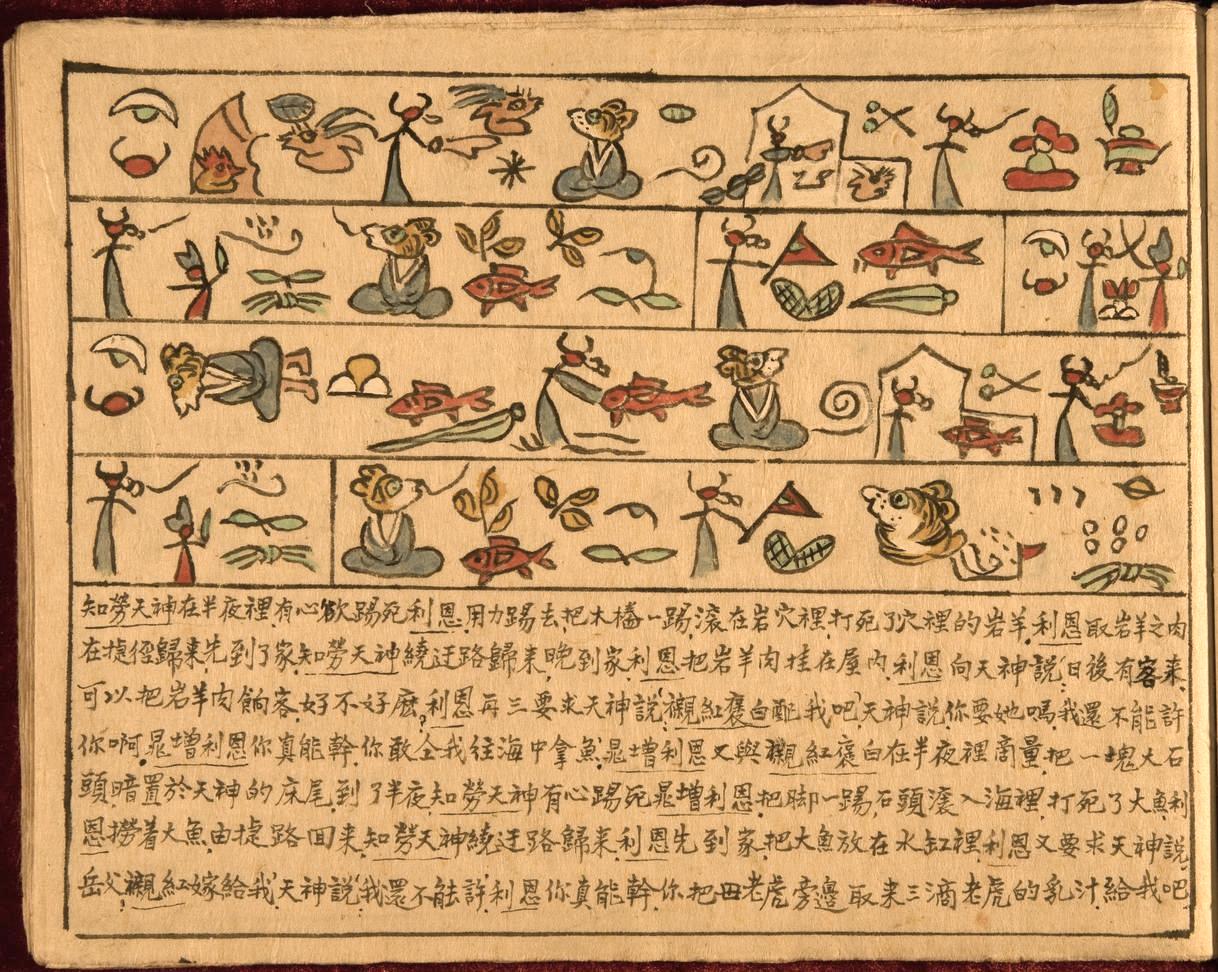 知勞天神在半夜裡有心欲踢死利恩.用力踢去.把木樁一踢.滾在岩穴裡.打死了穴裡的岩羊.利恩取岩羊之肉
在㨗徑歸来.先到了家.知勞天神繞迂路歸来.晩到家.利恩把岩羊肉挂在屋內.利恩向天神說‘日後有客来.
可以把岩羊肉餉客.好不好麽?利恩再三要求天神說‘襯紅褒白配我吧’天神說.你要她嗎.我還不能許
你啊.晁增利恩你真能幹.你敢仝我往海中拿魚.晁增利恩又與襯紅褒白在半夜裡商量.把一塊大石
頭暗置於天神的床尾.到了半夜.知勞天神有心踢死晁增利恩.把脚一踢.石頭滾入海裡.打死了大魚.利
恩撈着大魚.由㨗路回来.知勞天神繞迂路歸来.利恩先到家.把大魚放在水缸裡.利恩又要求天神說.
岳父.襯紅嫁給我’天神說‘我還不能許.利恩你真能幹.你把母老虎旁邊取来三滴老虎的乳汁給我吧.